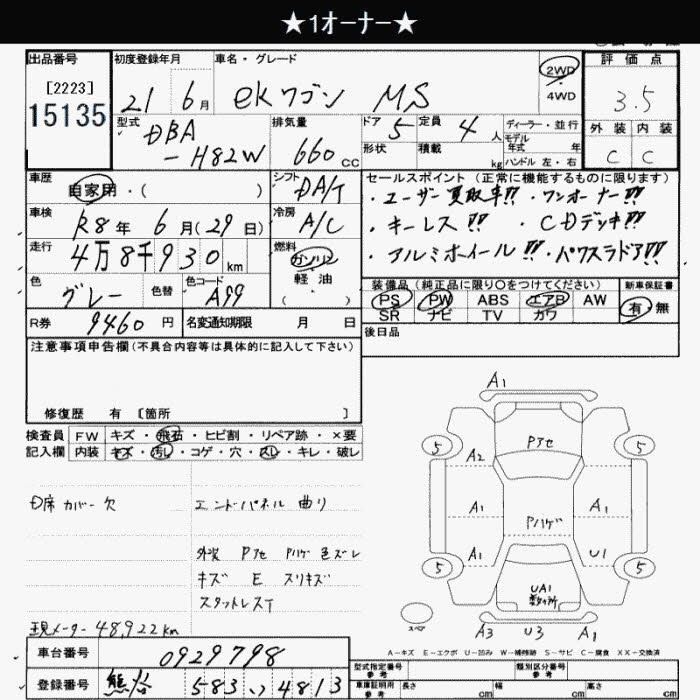 ★1オーナー★
出品番号
[2223]
15135
初度登録年月
21 6月
車名・グレード
ekワゴン MS
2WD
4WD
評価点
3.5
外装 内装
C C
型式
DBA
-H82W
排気量
660 CC
ドア 5
定員 4人
形状
積載 kg
ディーラー・並行
モデル年式 年
ハンドル 左・右
車歴
自家用・( )
シフト
DA/T
セールスポイント(正常に機能するものに限ります)
・ユーザー買取車!! ・ワンオーナー!!
・キーレス!! ・CDデッキ!!
・アルミホイール!! ・パワスラドア!!
車検
R8年 6月(29日)
冷房
A/C
走行
4万8千930km
燃料
ガソリン
軽油
( )
色
グレー
色替
色コード
A99
装備品(純正品に限り〇をつけてください)
PS PW ABS エアB AW
SR ナビ TV カワ
新車保証書
有・無
R券 9460円
名変通知期限 月 日
後日品
注意事項申告欄(不具合内容等は具体的に記入して下さい)
修復歴 有 [箇所 ]
検査員
記入欄
FW キズ・飛石・ヒビ割・リペア跡・×要
内装 キズ・汚し・コゲ・穴・スレ・キレ・破レ
D席カバー欠
エンドパネル 曲り
外装 Pアセ Pハゲ 色ズレ
キズ E スリキズ
スタットレスT
現メーター 48,922km
A1
Pアセ
5 5
A2
A1 A1
Pハゲ
A1 U1
5 5
UA1
スペア
A3 U3 A1
A-キズ E-エクボ U-凹み W-補修跡 S-サビ C-腐食 XX-交換済
車台番号 0929798
登録番号 熊谷 583 い 4813
型式指定番号
類別区分番号
車庫証明用参考 長さ cm 幅 cm 高さ cm